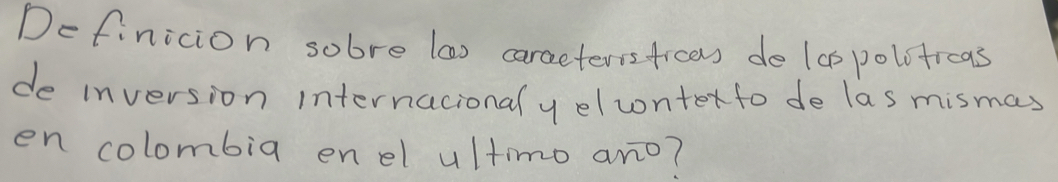 Definicion sobre las caracteristicas de las politicas
de inversion internacional y el contexto de las mismas
en colombia en el ultimo año?